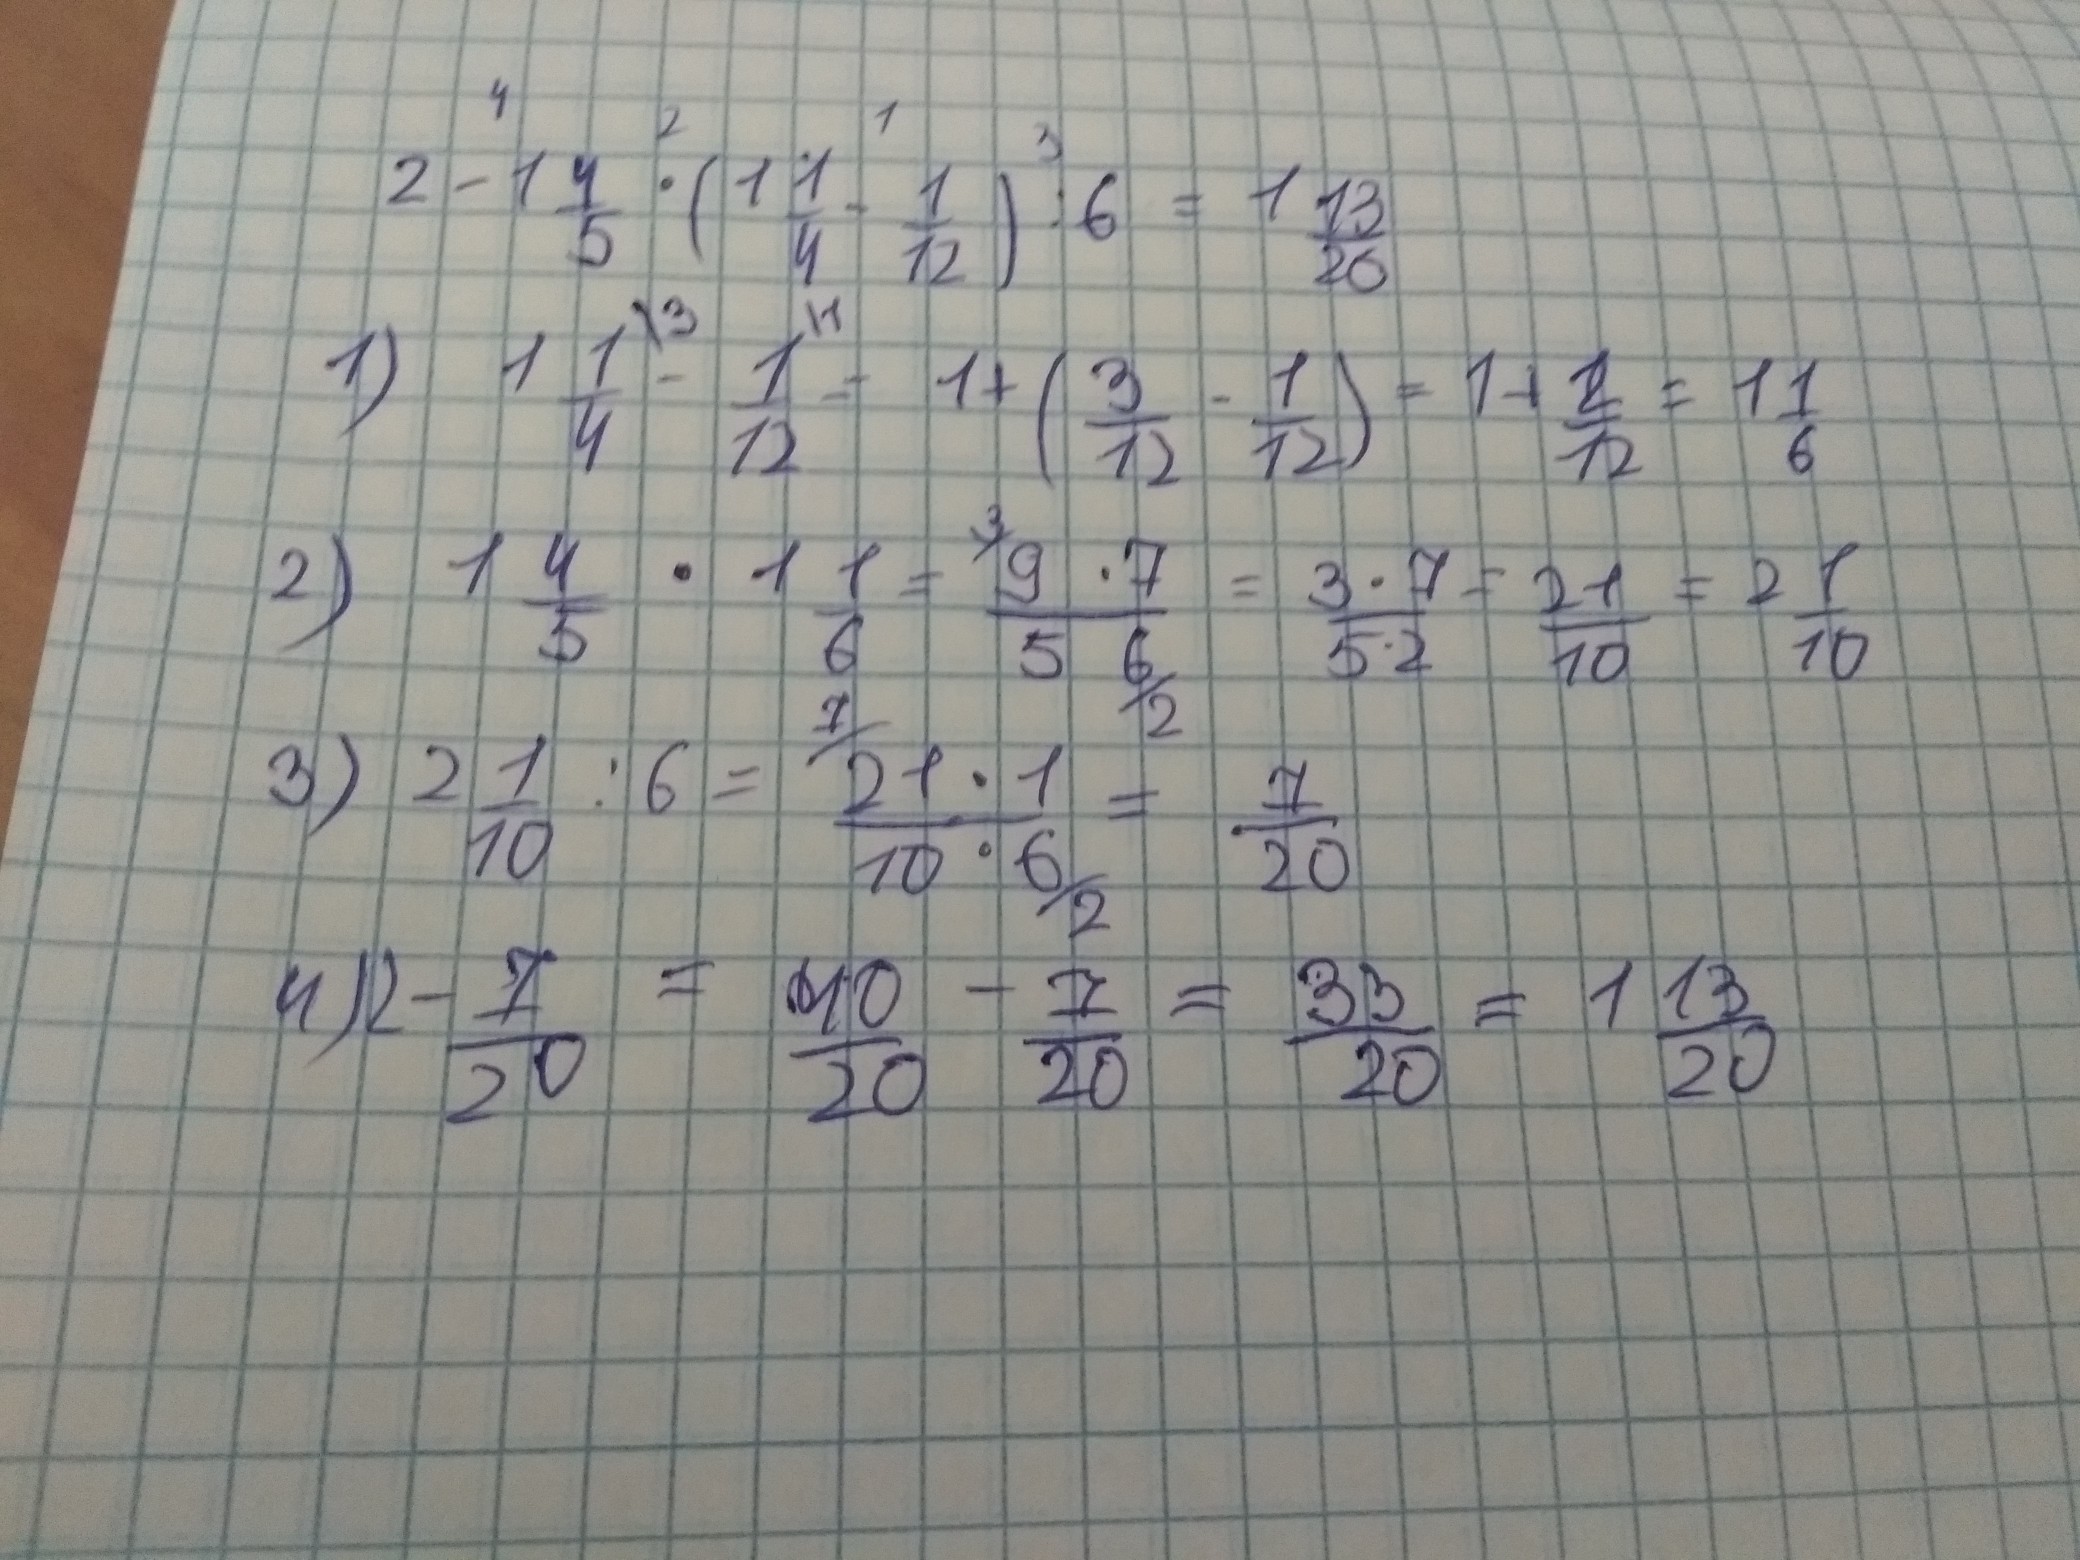 4 2 1 3
2 - 1 4/5 · (1 1/4 - 1/12) : 6 = 1 13/20
1) 1 1/4 \3 - 1/12 \1 = 1 + (3/12 - 1/12) = 1 + 2/12 = 1 1/6
2) 1 4/5 · 1 1/6 = 3/ 9 · 7 / 5 6 /2 = 3 · 7 / 5 · 2 = 21/10 = 2 1/10
3) 2 1/10 : 6 = 7/ 21 · 1 / 10 · 6 /2 = 7/20
4) 2 - 7/20 = 40/20 - 7/20 = 33/20 = 1 13/20